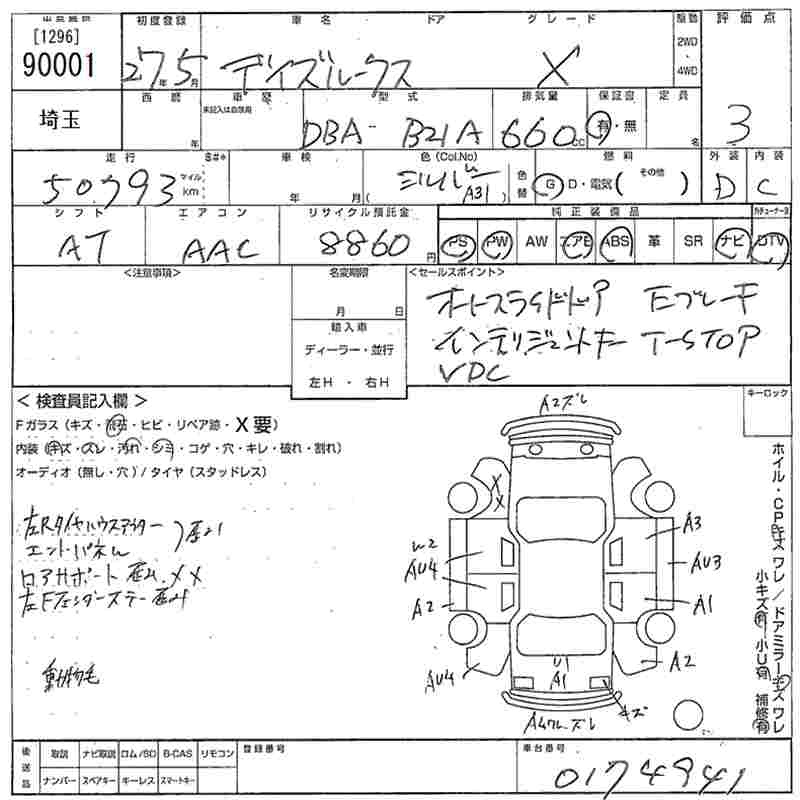 出品店機
[1296]
90001
初度登録 車名 ドア グレード 駆動 評価点
27年5月 デイズルークス X 2WD・4WD
埼玉
西暦 車歴 型式 排気量 保証書 定員
年 未記入は自家用 DBA- B21A 660cc 有・無 名 3
走行 車検 色(Col.No) 燃料 外装 内装
50,793 マイル km 年 月( シルバー A31) 色替 G D・電気( その他 ) D C
シフト エアコン リサイクル預託金 純正装備品
AT AAC 8860円 PS PW AW エアB ABS 革 SR ナビ DTV
<注意事項> 名変期限 <セールスポイント>
月 日
輸入車
ディーラー・並行
左H・右H
オートスライドドア Eブレーキ
インテリジェントキー I-STOP
VDC
キーロック
<検査員記入欄>
Fガラス(キズ・飛石・ヒビ・リペア跡・X要)
内装(キズ・スレ・汚れ・シミ・コゲ・穴・キレ・破れ・割れ)
オーディオ(無し・穴)/タイヤ(スタッドレス)
左Rタイヤハウスアウター
エンドパネル )歪ミ
ロアサポート 歪ミ.XX
左Fフェンダーステー歪ミ
動物毛
A2ズレ
X
X
A3
AU4
AU3
A2
A1
AU4
U1
A1
A2
キズ
A4ワレ.ズレ
ホイル・CPキズ ワレ/ドアミラーキズ ワレ
小キズ有 小U有 補修有
後送品 取説 ナビ取説 ロム/SD B-CAS リモコン 登録番号 車台番号
ナンバー スペアキー キーレス スマートキー
0174941